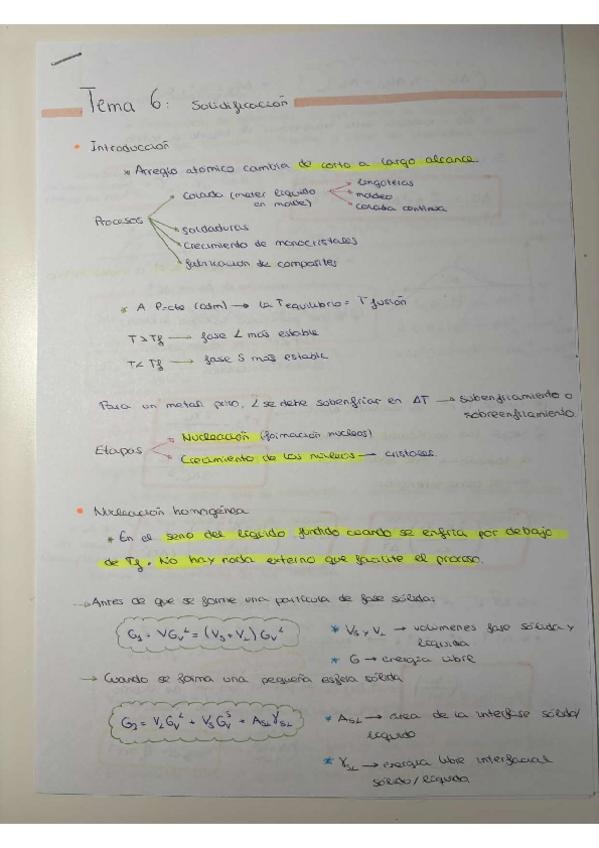 Tema 6: Solidificación
• Introducción
* Arreglo atómico cambia de corto a largo alcance.
Procesos
colada (meter líquido en molde)
lingoteras
moldeo
colada continua
soldaduras
Crecimiento de monocristales
fabricación de composites
* A P=cte (atm) → la Tequilibrio = T fusión
T > Tf → fase L más estable
T < Tf → fase S más estable
Para un metal puro, L se debe subenfriar en ΔT → subenfriamiento o
sobreenfriamiento.
Etapas
Nucleación (formación núcleos)
Crecimiento de los núcleos → cristales.
• Nucleación homogénea
* En el seno del líquido fundido cuando se enfría por debajo
de Tf. No hay nada externo que facilite el proceso.
→ Antes de que se forme una partícula de fase sólida:
G₁ = VGᵥᴸ = (Vs + V_L) Gᵥᴸ
* Vs y V_L → volúmenes fase sólida y
líquida
* G → energía libre
→ Cuando se forma una pequeña esfera sólida
G₂ = V_L Gᵥᴸ + Vs Gᵥˢ + A_SL γ_SL
* A_SL → área de la interfase sólido/
líquido
* γ_SL → energía libre interfacial
sólido/líquida